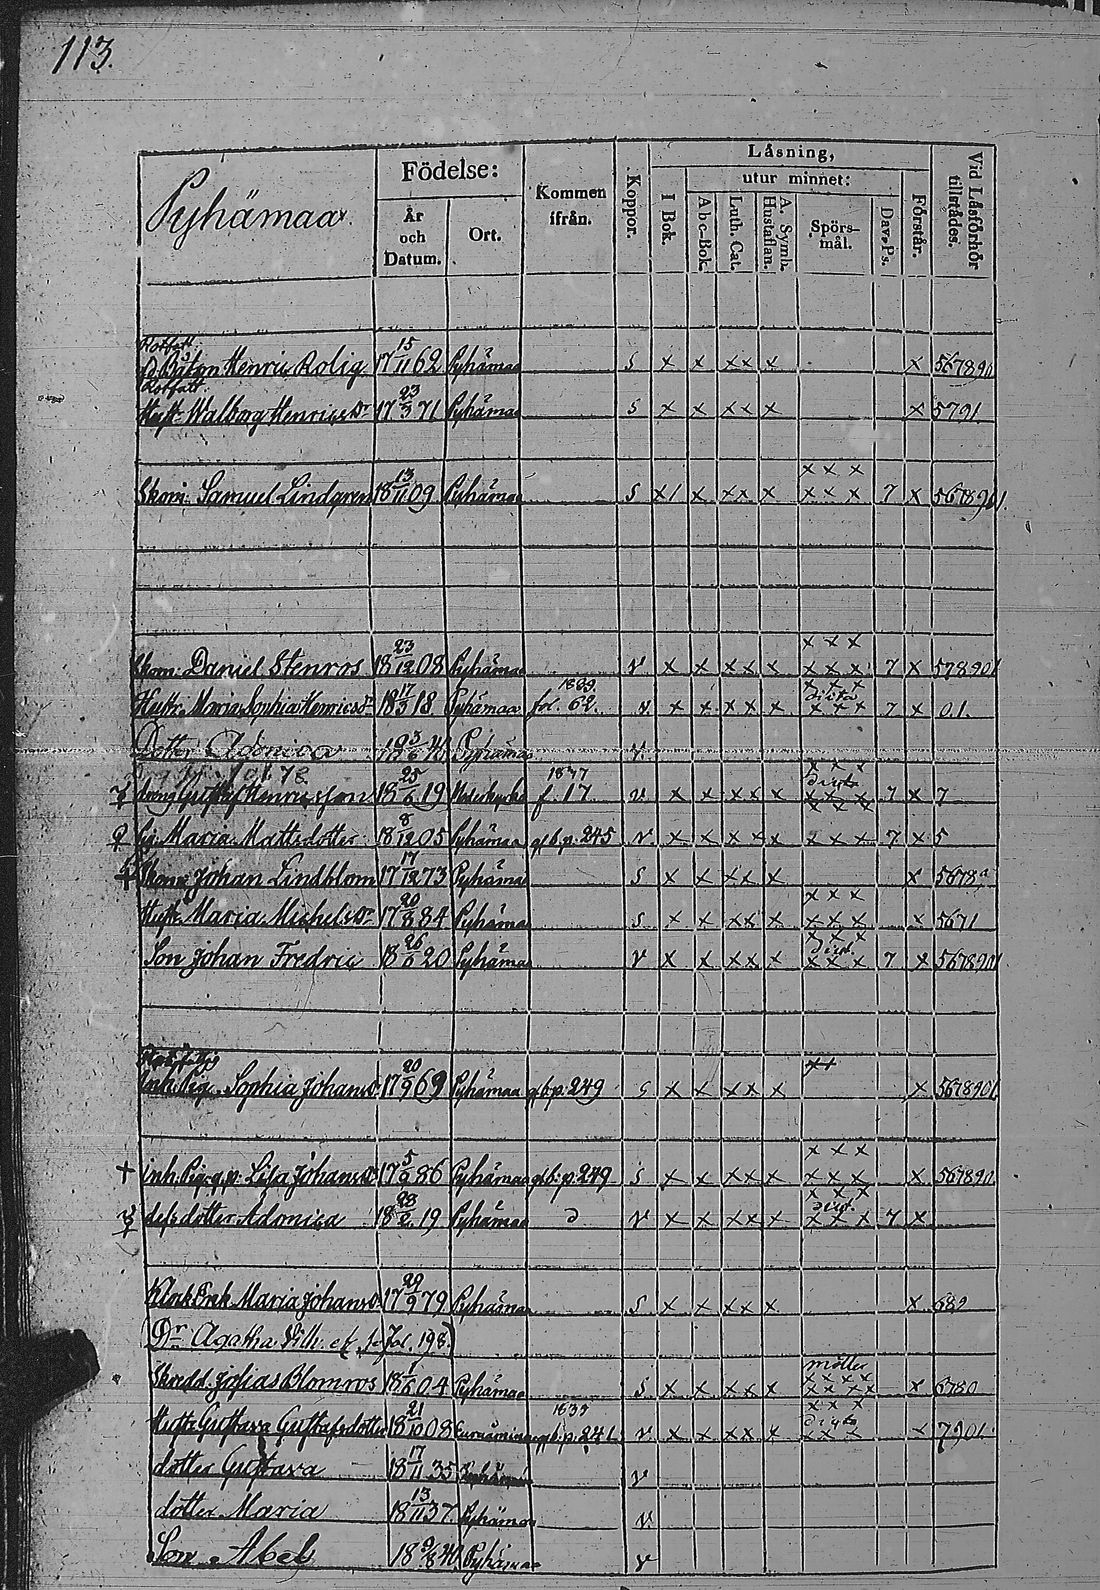 113.
Pyhämaa
Födelse:
År och Datum.
Ort.
Kommen ifrån.
Koppor.
Läsning,
I Bok.
utur minnet:
A b c-Bok.
Luth. Cat.
A. Symb. Hustaflan.
Spörs-mål.
Dav. Ps.
Förstår.
Vid Läsförhör tillstädes.
Rotfatt:
Henric Rolig 17 15/11 62 Pyhämaa S x x xx x x 567890
Rotfatt.
Hust. Walborg Henricsdr 17 23/3 71 Pyhämaa S x x xx x x 5791
x x x
Skom. Samuel Lindgren 18 13/11 09 Pyhämaa S x x xx x x x x 7 x 5678901.
x x x
Skom. Daniel Stenros 18 23/12 08 Pyhämaa v x x xx x x x x 7 x 578901
Hustr. Maria Sophia Henricsdr 18 17/3 18 Pyhämaa fol. 62. v x x xx x x x x 7 x 01.
Dotter Adonica Pyhämaa v.
1837
dräng Gustaf Henricsson 18 25/6 19 f. 17 v x x xx x 7 x 7
Pig. Maria Mattsdotter 18 8/12 05 Pyhämaa glb. p. 245 v x x xx x 7 x 5
Skom. Johan Lindblom 17 17/12 73 Pyhämaa S x x xx x x
x x x
Hustr. Maria Michelsdr 17 20/8 84 Pyhämaa S x x xx x x x x x 5671
Son Johan Fredric 18 26/6 20 Pyhämaa v x x xx x x x x 7 x 567890
Inh. Pig. Sophia Johansd. 17 20/9 69 Pyhämaa glb p. 249 S x x xx x x 5678901
x x x
+ inh. Pig. Lisa Johansdr 17 5/9 86 Pyhämaa glb. p. 249 S x x xx x x x x x 567890
dess dotter Adonica 18 23/2 19 Pyhämaa v x x xx x x x x 7 x
Klock. Enk. Maria Johansd. 17 29/9 79 Pyhämaa S x x xx x x 689
Dr Agatha Vilh. fol. 198.
Skredd. Josias Blomros 18 1/6 04 Pyhämaa S x x xx x x 6780
1835
Hustr. Gustava Gustafsdotter 18 21/10 08 glb. p. 241. v x x xx x x x x x 7901.
dotter Gustava 18 17/11 35 v
dotter Maria 18 13/11 37. Pyhämaa v.
Son Abel 18 9/8 40 Pyhämaa v